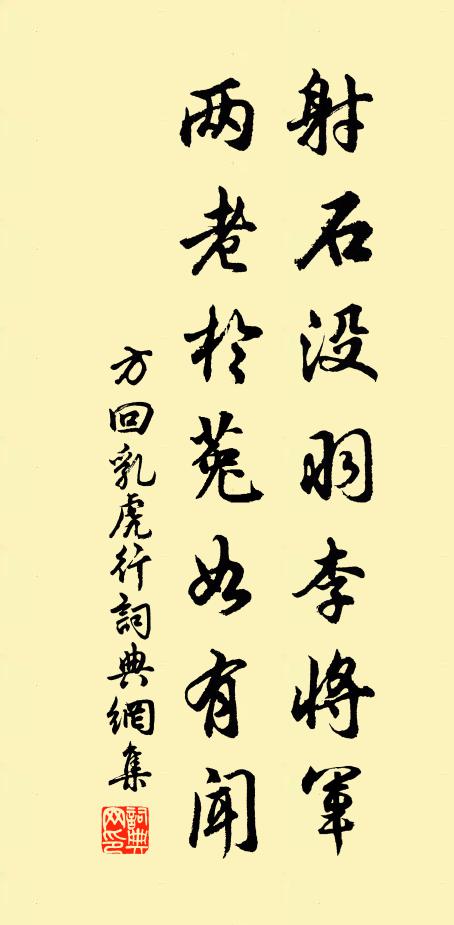 射石没羽李将軍
两老於菟如有闻
方回乳虎行詞典網集
詞典网印